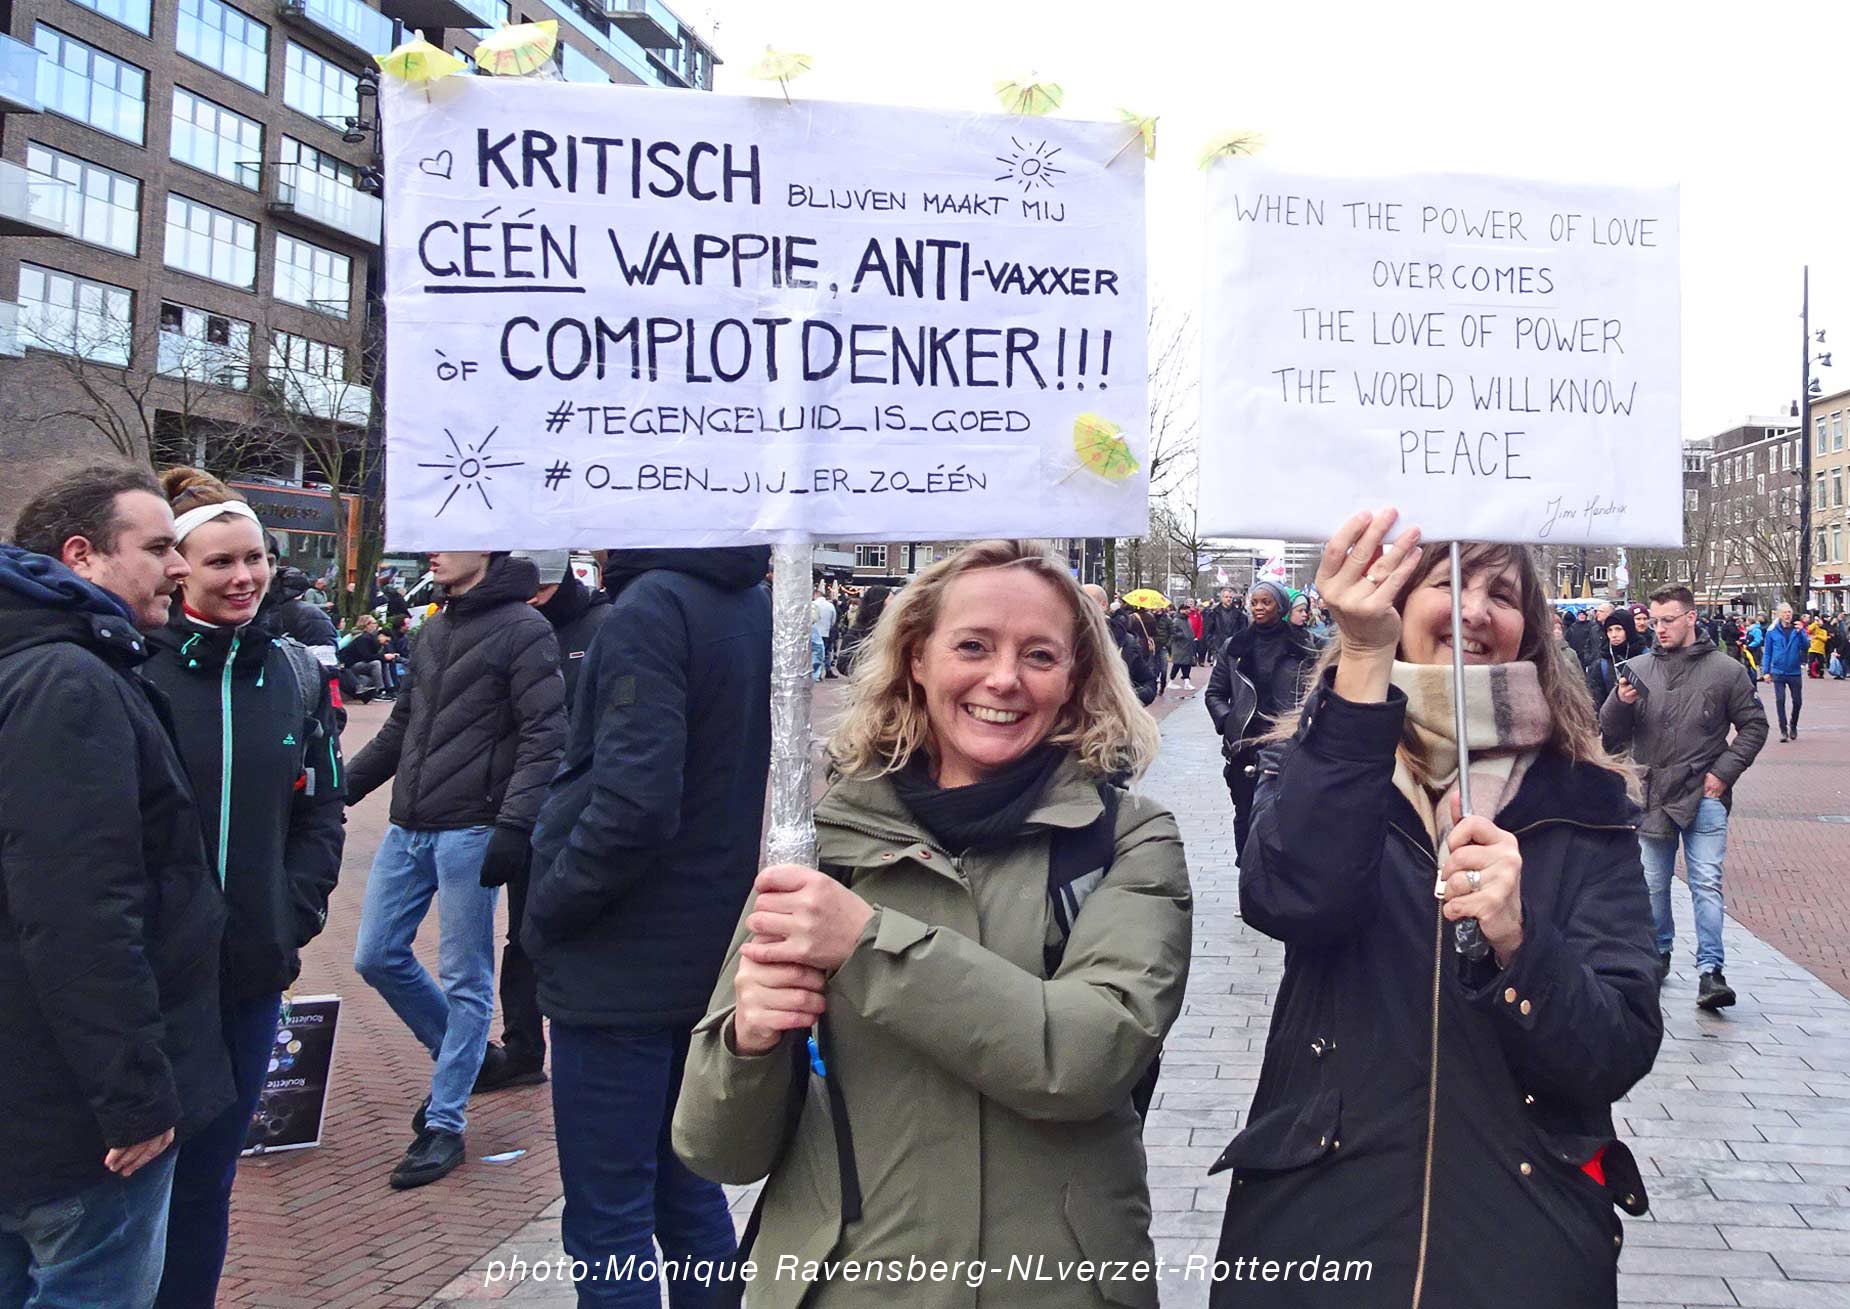 KRITISCH BLIJVEN MAAKT MIJ
GÉÉN WAPPIE, ANTI-VAXXER
ÒF COMPLOTDENKER!!!
#TEGENGELUID_IS_GOED
# O_BEN_JIJ_ER_ZO_ÉÉN
WHEN THE POWER OF LOVE
OVERCOMES
THE LOVE OF POWER
THE WORLD WILL KNOW
PEACE
Jimi Hendrix
Roulette
Roulette
photo:Monique Ravensberg-NLverzet-Rotterdam